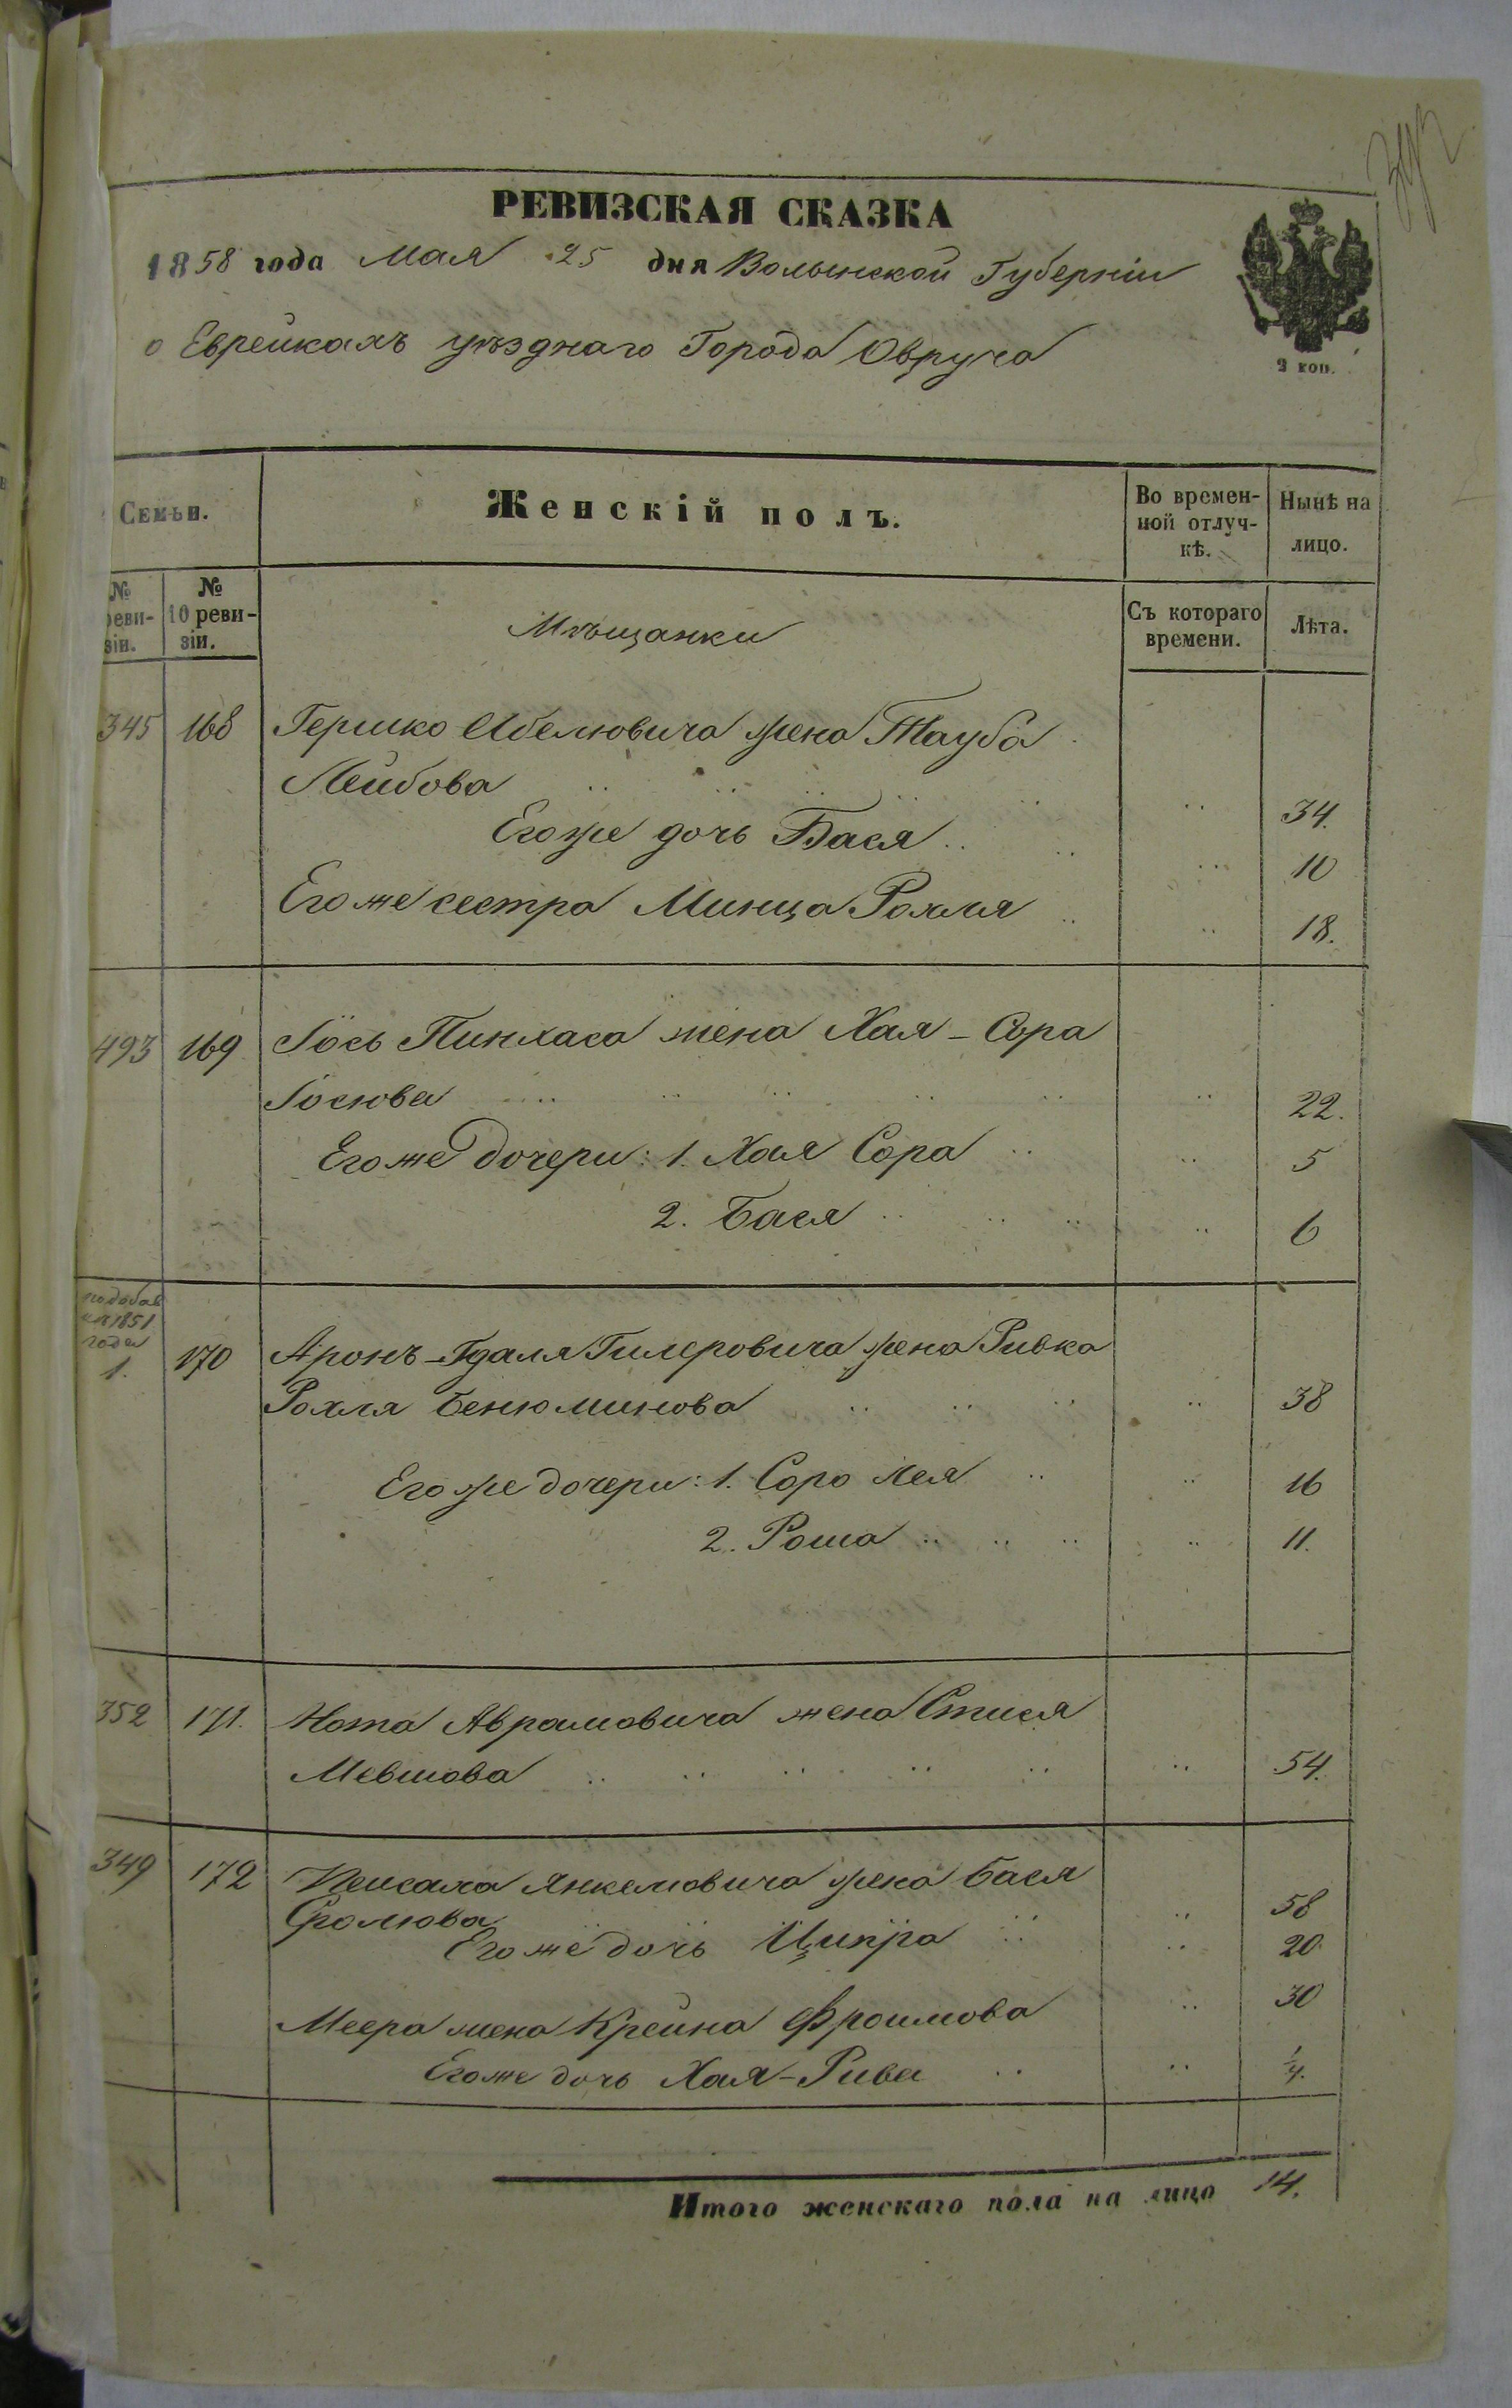 РЕВИЗСКАЯ СКАЗКА
1858 года Мая 25 дня Волынской Губерніи
о Еврейкахъ уѣзднаго Города Овруча
2 коп.
Семьи.
Женскій полъ.
Во времен-
ной отлуч-
кѣ.
Нынѣ на
лицо.
№
реви-
зіи.
№
10 реви-
зіи.
Мѣщанки
Съ котораго
времени.
Лѣта.
345 168 Гершко Абелювича жена Тауба
Лейбова 34.
Егоже дочь Бася 10
Егоже сестра Минца Рохля 18.
493 169 Іось Пинхаса жена Хая-Сора
Іосюва 22.
Егоже дочери: 1. Хая Сора 5
2. Бася 6
1851
года
1. 170 Аронъ-Гдаля Гилеровича жена Ривка
Рохля Бенюминова 38
Егоже дочери: 1. Соро Лея 16
2. Роша 11.
352 171. Нота Аврамовича жена Стися
Мевшова 54.
349 172 Пейсаха Янкелювича жена Бася
Сролюва 58
Егоже дочь Ципра 20
Меера жена Крейна Фроимова 30
Егоже дочь Хая-Рива 1/4.
Итого женскаго пола на лицо 14.